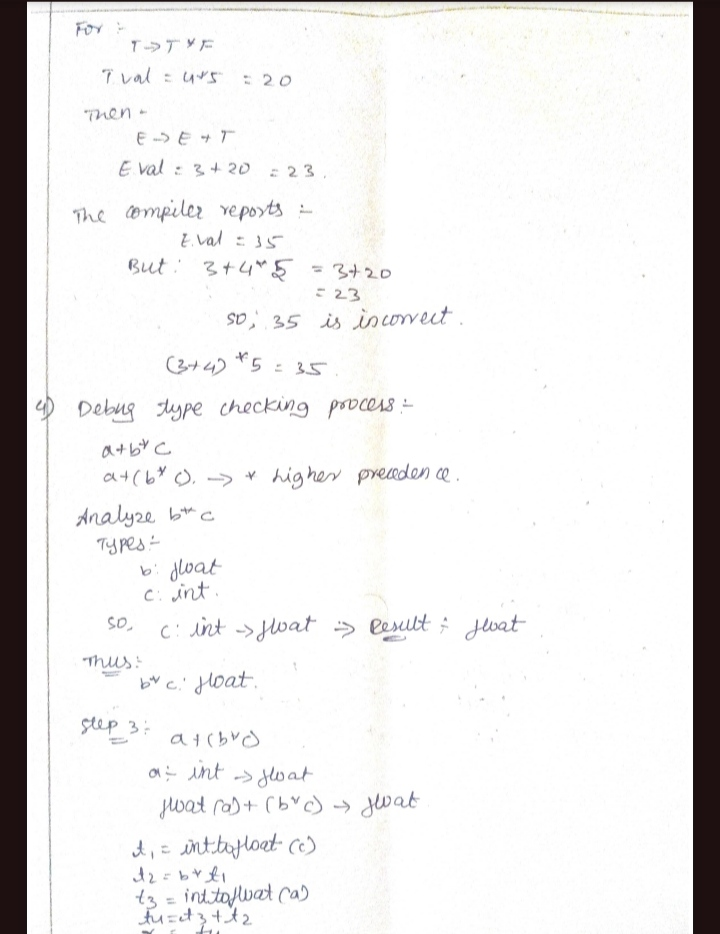 For :-
T → T * F
T.val = 4*5 = 20
Then -
E → E + T
E.val = 3 + 20 = 23.
The compiler reports :-
E.val = 35
But : 3+4*5 = 3+20
= 23
so, 35 is incorrect.
(3+4) *5 = 35.
4) Debug type checking process :-
a+b*c
a+(b*c). → * higher precedence.
Analyze b*c
Types :-
b: float
c: int.
so, c: int → float ⇒ Result : float
Thus :-
b*c: float.
Step 3 :-
a+(b*c)
a :- int → float
float (a) + (b*c) → float
t1 = inttofloat (c)
t2 = b * t1
t3 = inttofloat (a)
t4 = t3 + t2